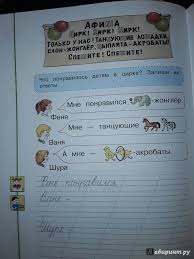 АФИША
ЦИРК! ЦИРК! ЦИРК!
ТОЛЬКО У НАС! ТАНЦУЮЩИЕ ЛОШАДКИ,
СЛОН-ЖОНГЛЁР, ЦЫПЛЯТА-АКРОБАТЫ!
СПЕШИТЕ! СПЕШИТЕ!
Что понравилось детям в цирке? Запиши их
ответы.
Мне понравился -жонглёр.
Феня
Мне — танцующие
Ваня
А мне — -акробаты.
Шура
Фене понравился
Ване –
Шуре
Лабиринт.ру